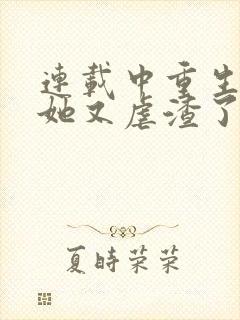 連載中重生
她又虐渣了
夏時榮榮